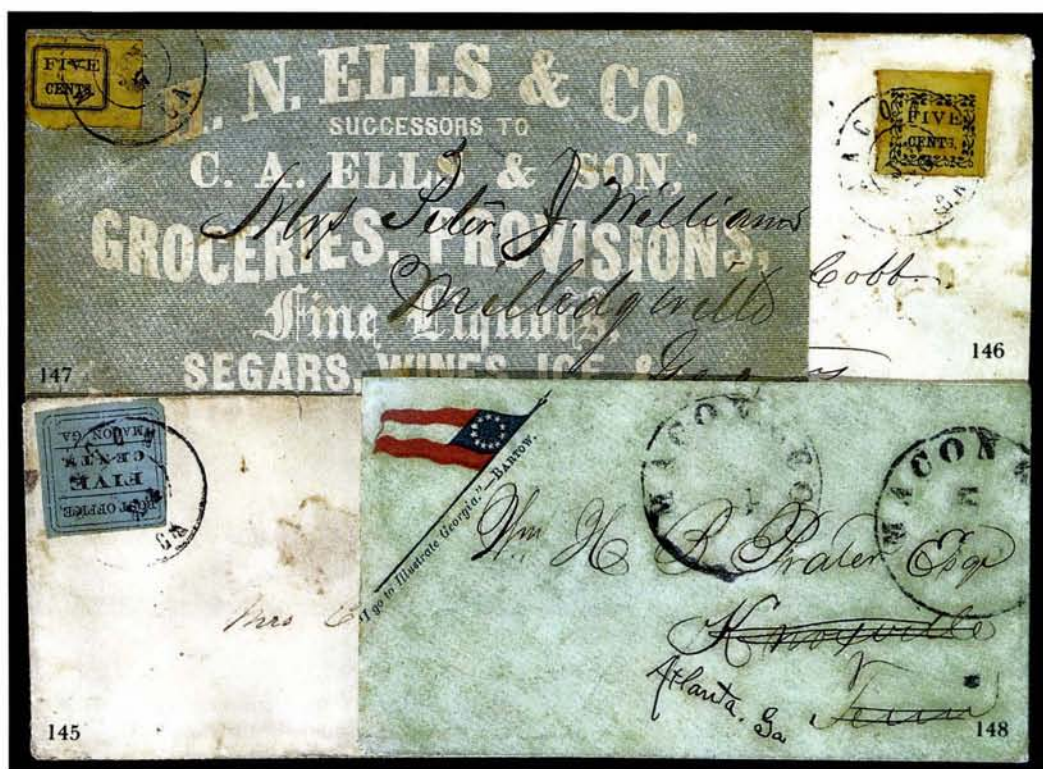 FIVE
CENTS.
GA
N. ELLS & CO.
SUCCESSORS TO
C. A. ELLS & SON,
GROCERIES, PROVISIONS,
Fine Liquors,
SEGARS, WINES, ICE, &
Mrs Peter J Williams
Milledgeville
147
FIVE
CENTS.
MACO
GA
Cobb
146
POST OFFICE,
FIVE
CENTS
MACON, GA
Mrs
145
"I go to Illustrate Georgia."—BARTOW.
MACON
MACON
Wm H B Prater Esqr
Knoxville
Tenn
Atlanta, Ga
148